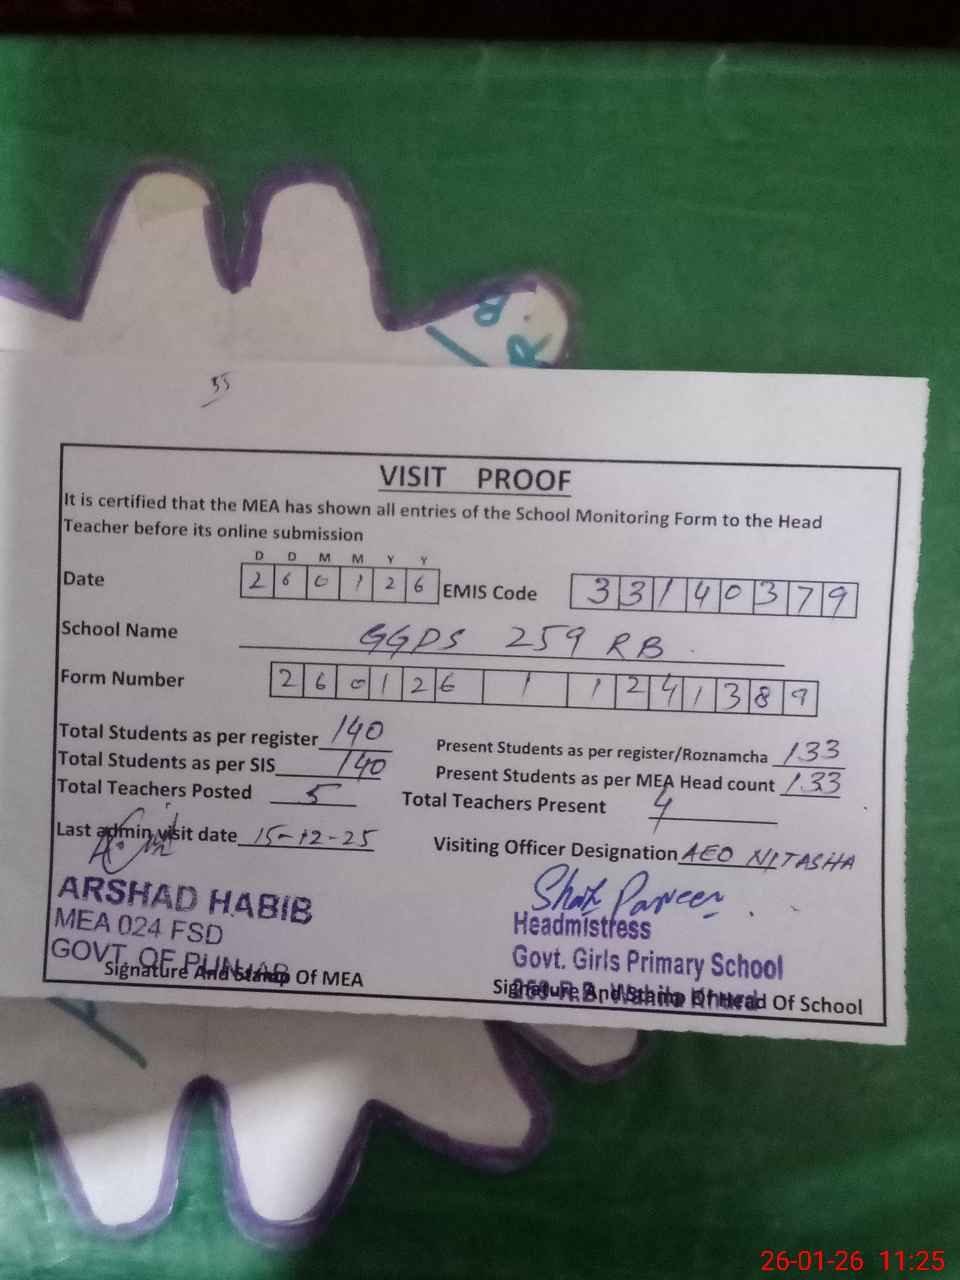 55
VISIT PROOF
It is certified that the MEA has shown all entries of the School Monitoring Form to the Head
Teacher before its online submission
D D M M Y Y
Date 2 6 0 1 2 6 EMIS Code 3 3 1 4 0 3 7 9
School Name GGPS 259 RB
Form Number 2 6 0 1 2 6 1 1 2 4 1 3 8 9
Total Students as per register 140 Present Students as per register/Roznamcha 133
Total Students as per SIS 140 Present Students as per MEA Head count 133
Total Teachers Posted 5 Total Teachers Present 4
Last admin visit date 15-12-25 Visiting Officer Designation AEO NITASHA
ARSHAD HABIB
MEA 024 FSD
GOVT. OF PUNJAB
Signature And Stamp Of MEA
Parveen
Headmistress
Govt. Girls Primary School
259-R.B
Signature And Stamp Of Head Of School
26-01-26 11:25